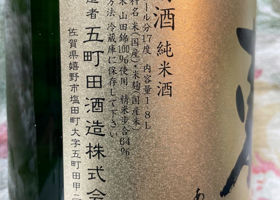 酒 純米酒
ール分17度 内容量1.8L
料名 米(国産)・米麹(国産米)
米山田錦100%使用 精米歩合64%
方法 冷蔵庫に保存して下さい
造者 五町田酒造株式会
佐賀県嬉野市塩田町大字五町田甲二